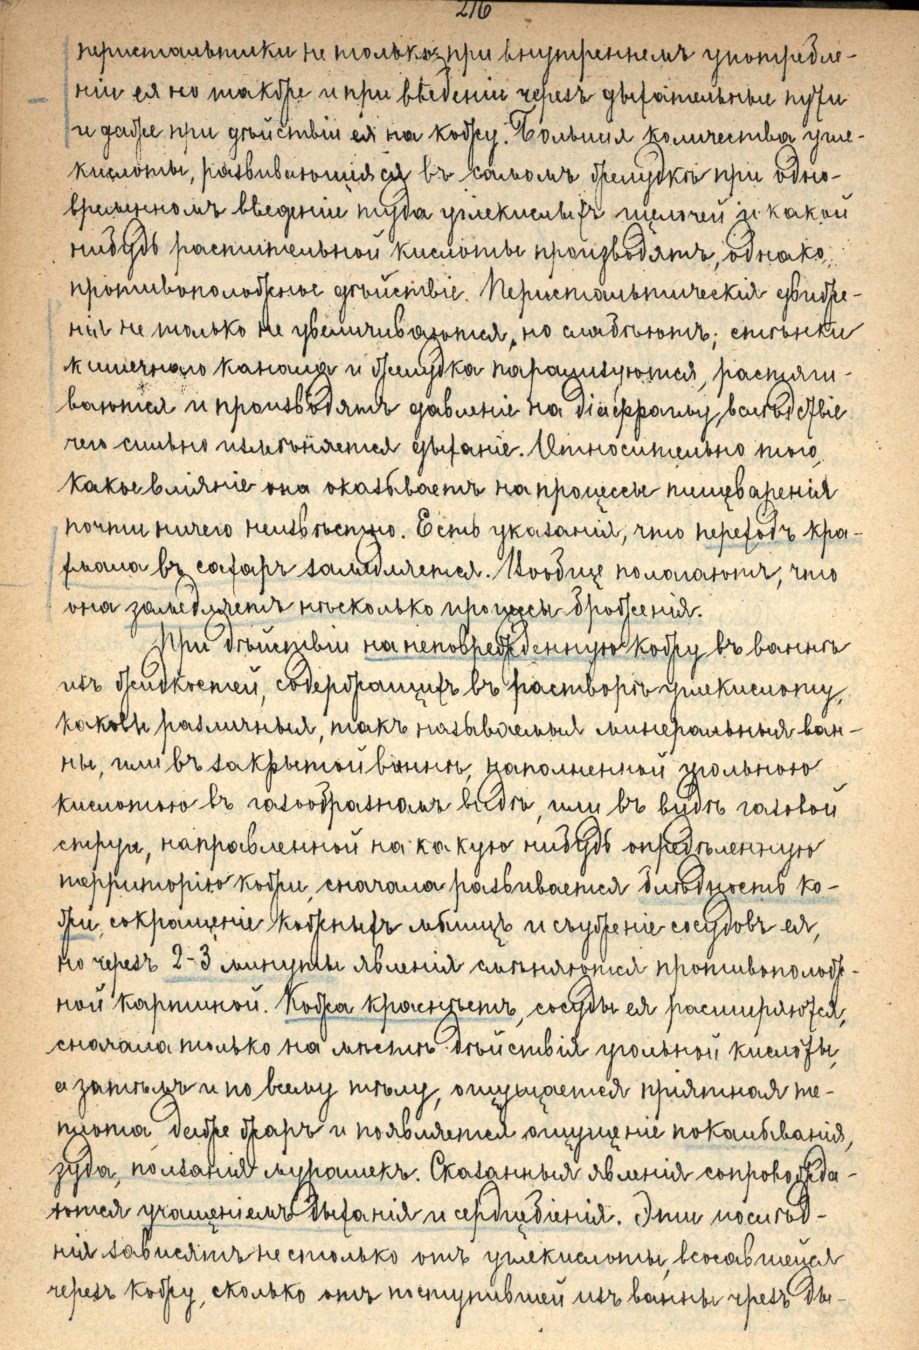 216
перистальтики не только при внутреннемъ употребле-
ніи ея но также и при введеніи черезъ дыхательные пути
и даже при дѣйствіи ея на кожу. Большія количества угле-
кислоты, развивающіяся въ самомъ желудкѣ при одно-
временномъ введеніе туда углекислыхъ щелочей и какой
нибудь растительной кислоты производятъ, однако,
противоположное дѣйствіе. Перистальтическія движе-
нія не только не увеличиваются, но слабѣютъ; стѣнки
кишечнаго канала и желудка парализуются, растяги-
ваются и производятъ давленіе на діафрагму, вслѣдствіе
чего сильно измѣняется дыханіе. Относительно того,
какое вліяніе она оказываетъ на процессы пищеваренія
почти ничего неизвѣстно. Есть указанія, что переходъ кра-
хмала въ сахаръ замедляется. Вообще полагаютъ, что
она замедляетъ нѣсколько процессы броженія.
При дѣйствіи на неповрежденную кожу въ ваннѣ
изъ жидкостей, содержащихъ въ растворѣ углекислоту,
каковы различныя, такъ называемыя минеральныя ван-
ны, или въ закрытой ваннѣ, наполненной угольною
кислотою въ газообразномъ видѣ, или въ видѣ газовой
струи, направленной на какую нибудь опредѣленную
территорію кожи, сначала развивается блѣдность ко-
жи, сокращеніе кожныхъ мышцъ и съуженіе сосудовъ ея,
но черезъ 2-3 минуты явленія смѣняются противополож-
ной картиной. Кожа краснѣетъ, сосуды ея расширяются,
сначала только на мѣстѣ дѣйствія угольной кислоты,
а затѣмъ и по всему тѣлу, ощущается пріятная те-
плота, даже жаръ и появляется ощущеніе покалыванія,
зуда, ползанія мурашекъ. Сказанныя явленія сопровожда-
ются учащеніемъ дыханія и сердцебіенія. Эти послѣд-
нія зависятъ не столько отъ углекислоты, всосавшейся
черезъ кожу, сколько отъ поступившей изъ ванны чрезъ ды-